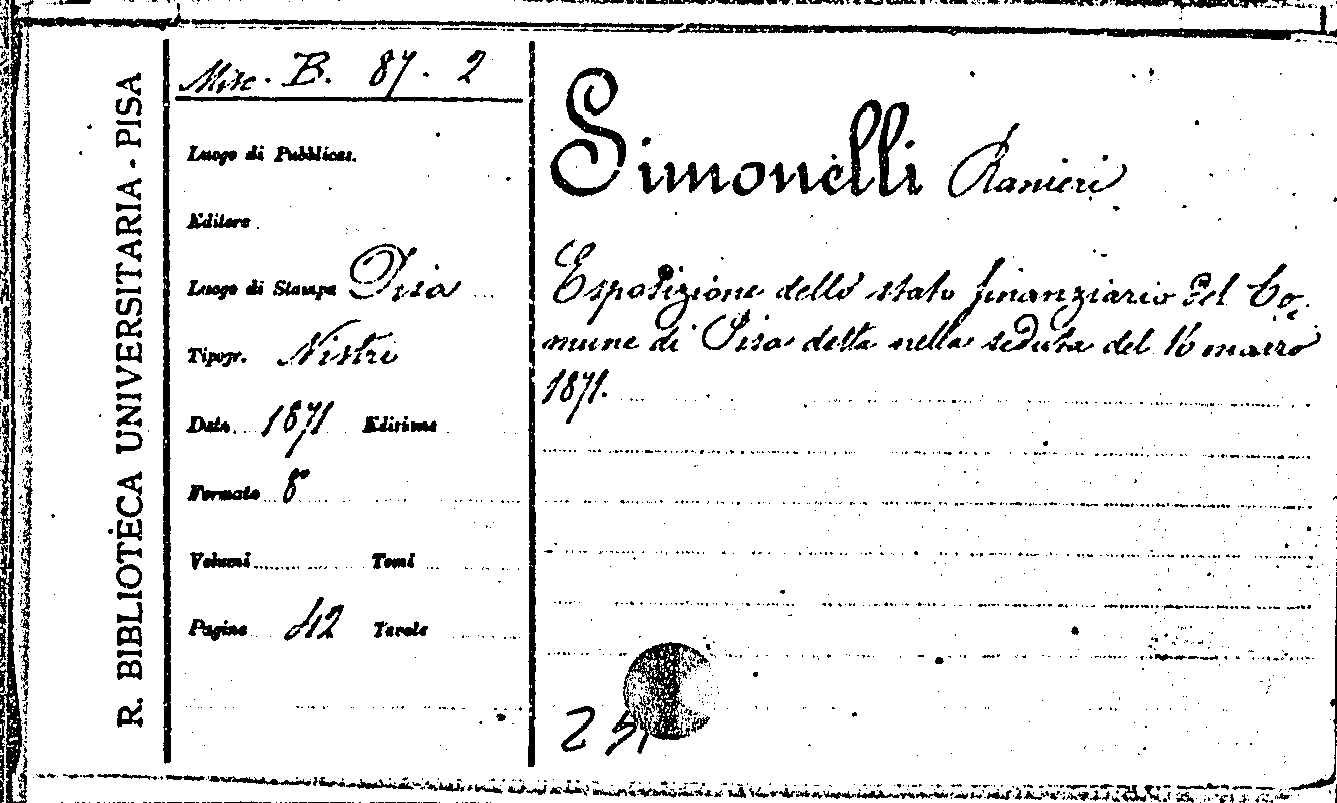 R. BIBLIOTECA UNIVERSITARIA - PISA
Misc. B. 87. 2
Luogo di Pubblicaz.
Editore
Luogo di Stampa Pisa
Tipogr. Nistri
Data 1871 Edizione
Formato 8°
Volumi Tomi
Pagine 42 Tavole
Simonelli Ranieri
Esposizione dello stato finanziario del Co-
mune di Pisa detta nella seduta del 16 marzo
1871.